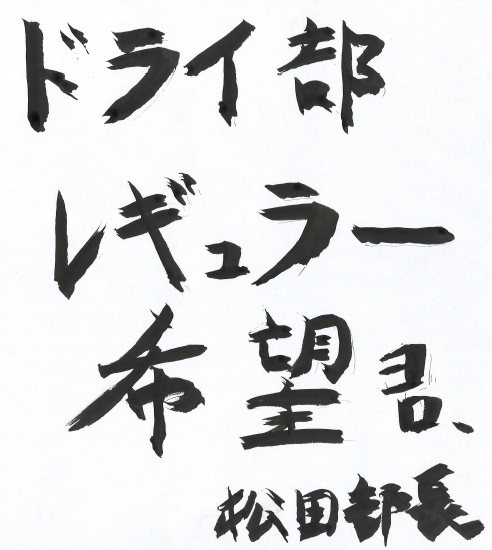 ドライ部
レギュラー
希望ヨロ、
松田部長